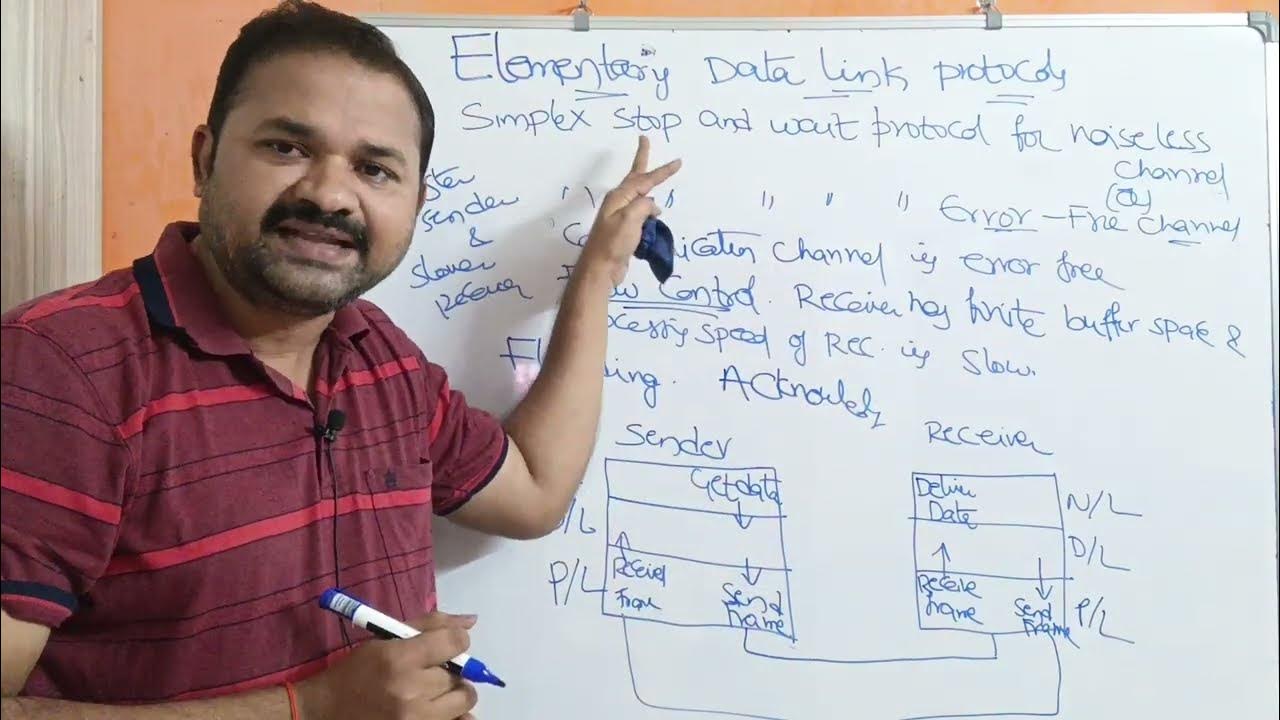 Elementary Data Link protocols
Simplex stop and wait protocol for noiseless
Channel
(or)
" " " " " Error-Free Channel
Channel is error free
sender
&
slower
receiver
Control. Receiver has finite buffer space &
speed of Rec. is slow.
Sender
Receiver
Get data
Deliver
Data
N/L
D/L
P/L
Receive
Frame
Send
Frame
Receive
frame
Send
Frame
P/L